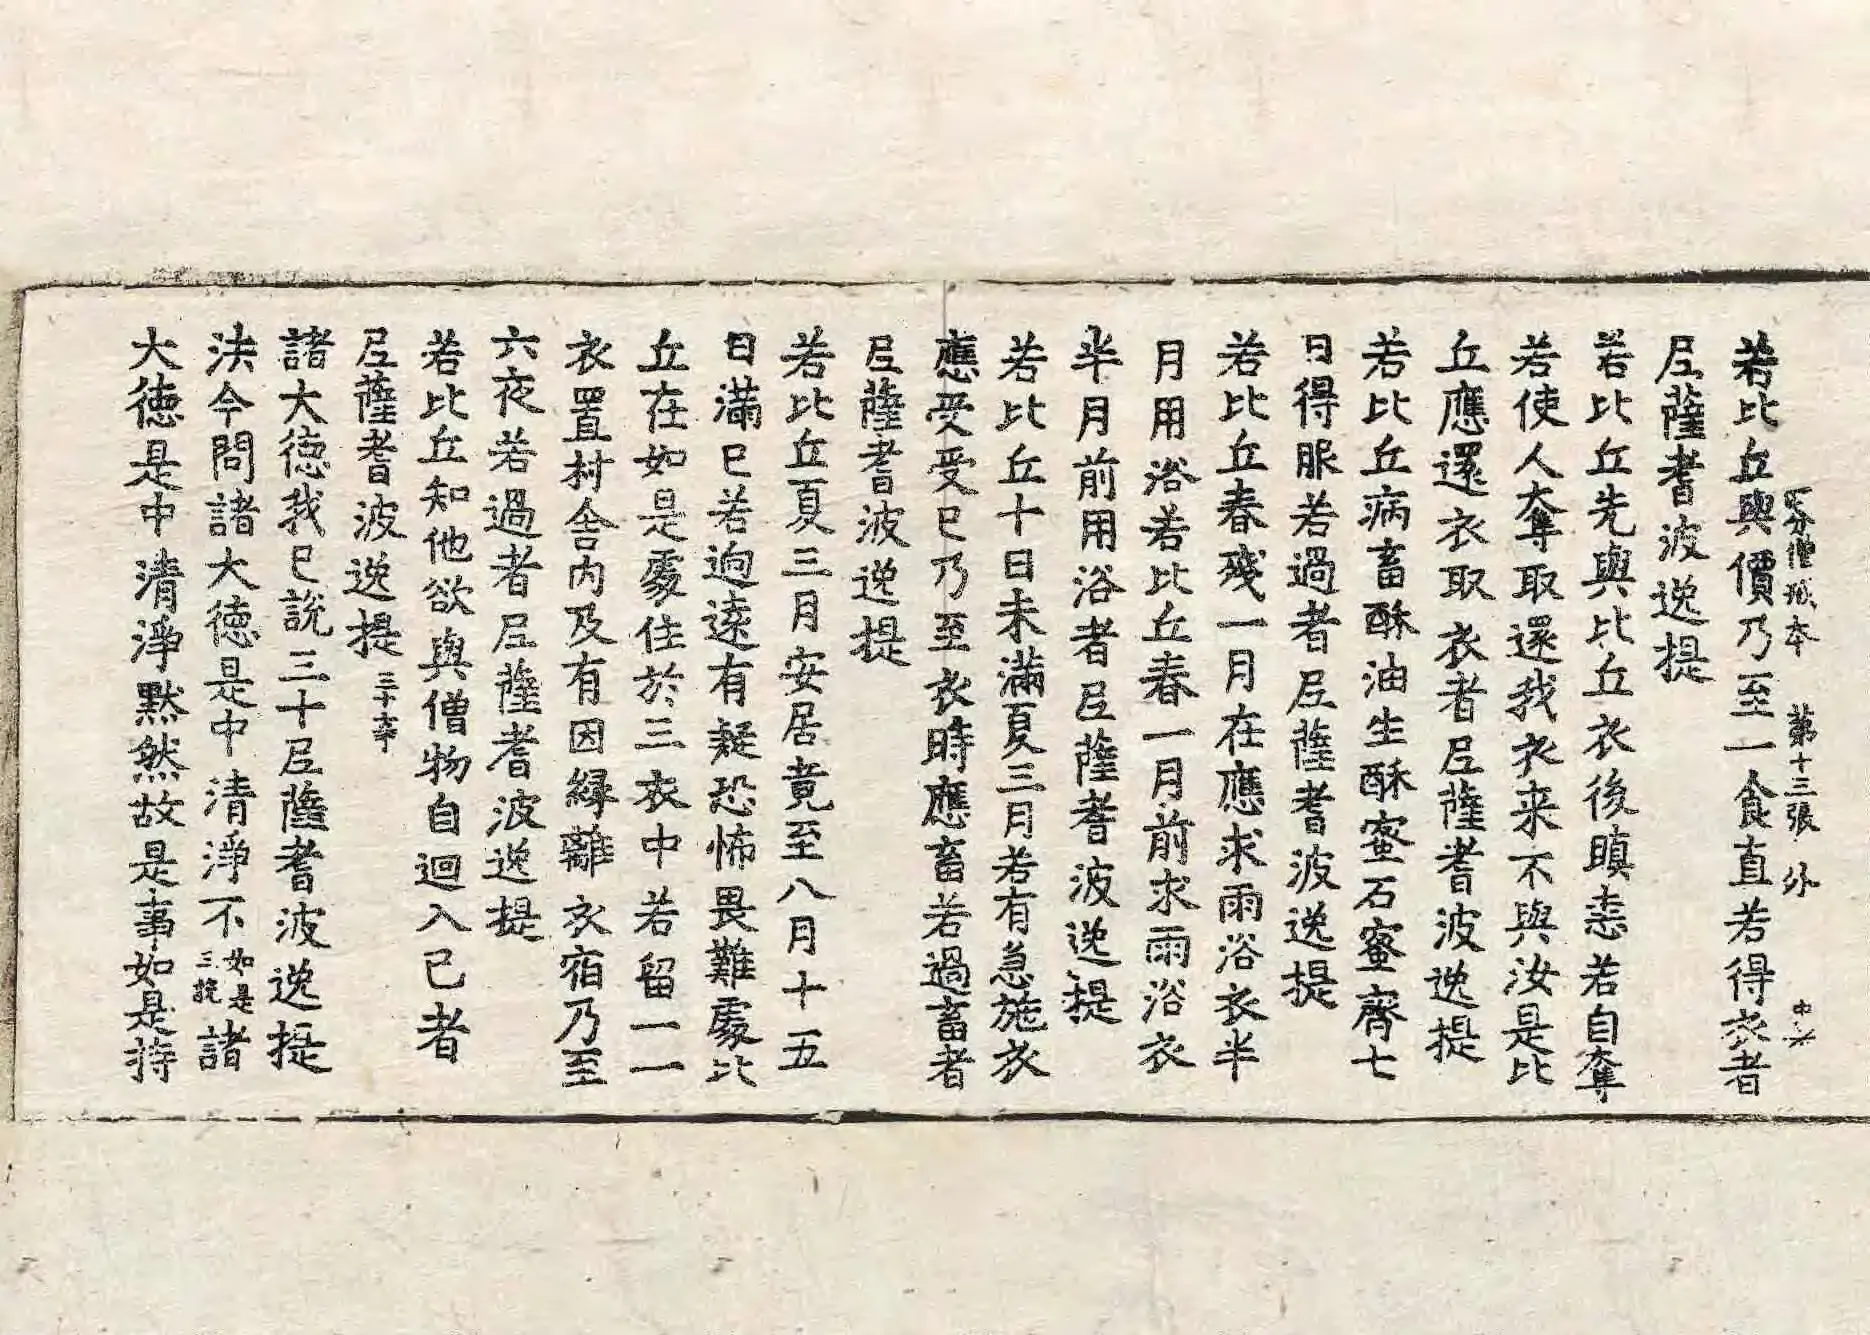 四分僧戒本　第十三張　外
若比丘與價乃至一食直若得衣者
尼薩耆波逸提
若比丘先與比丘衣後瞋恚若自奪
若使人奪取還我衣来不與汝是比
丘應還衣取衣者尼薩耆波逸提
若比丘病畜酥油生酥蜜石蜜齊七
日得服若過者尼薩耆波逸提
若比丘春殘一月在應求雨浴衣半
月用浴若比丘春一月前求雨浴衣
半月前用浴者尼薩耆波逸提
若比丘十日未滿夏三月若有急施衣
應受受已乃至衣時應畜若過畜者
尼薩耆波逸提
若比丘夏三月安居竟至八月十五
日滿已若逈遠有疑恐怖畏難處比
丘在如是處住於三衣中若留一一
衣置村舍内及有因縁離衣宿乃至
六夜若過者尼薩耆波逸提
若比丘知他欲與僧物自迴入己者
尼薩耆波逸提三十竟
諸大徳我已說三十尼薩耆波逸提
法今問諸大徳是中清淨不如是三說諸
大徳是中清淨黙然故是事如是持